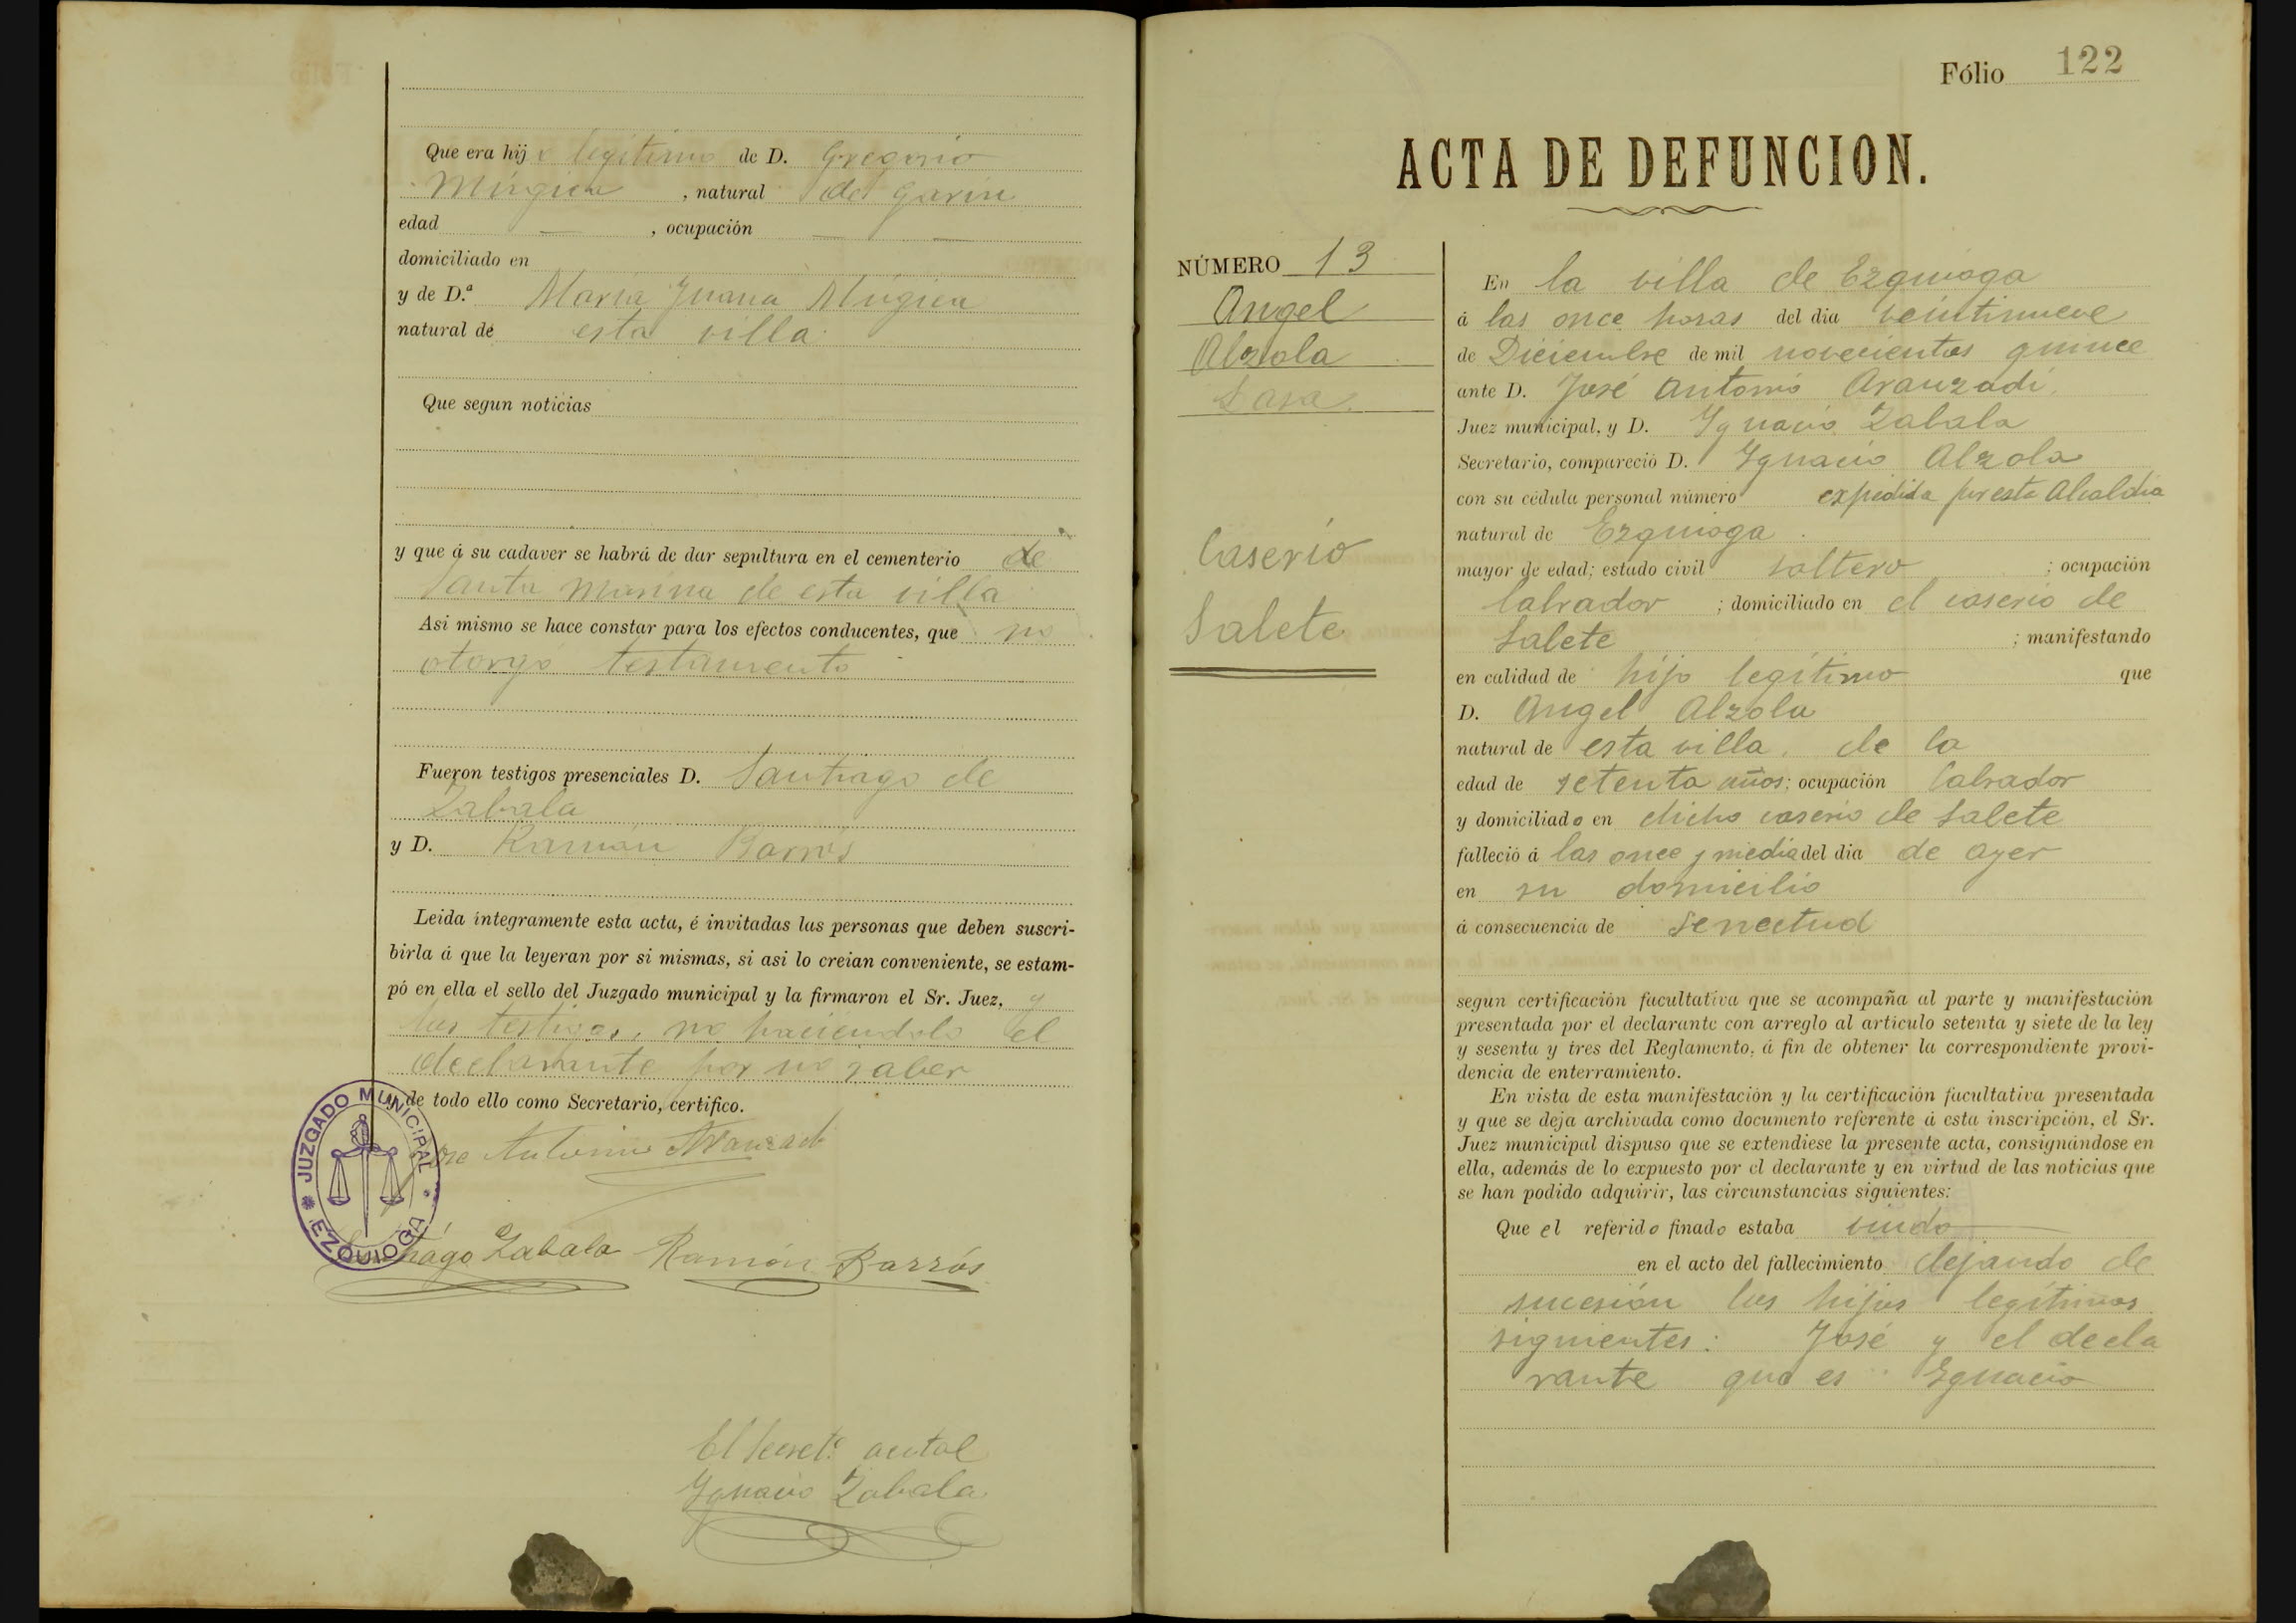 Que era hijo legitimo de D. Gregorio
Múgica, natural de Garin
edad — , ocupación — —
domiciliado en
y de D.ª Maria Juana Múgica
natural de esta villa
Que segun noticias
y que á su cadaver se habrá de dar sepultura en el cementerio de
Santa Marina de esta villa
Asi mismo se hace constar para los efectos conducentes, que no
otorgó testamento
Fueron testigos presenciales D. Santiago de
Zabala
y D. Ramón Barrós
Leida integramente esta acta, é invitadas las personas que deben suscri-
birla á que la leyeran por si mismas, si asi lo creian conveniente, se estam-
pó en ella el sello del Juzgado municipal y la firmaron el Sr. Juez, y
los testigos, no haciendolo el
declarante por no saber
y de todo ello como Secretario, certifico.
JUZGADO MUNICIPAL
EZQUIOGA
Jose Antonio Aranzadi
Santiago Zabala Ramón Barrós
El Secretº actal
Ygnacio Zabala
Fólio 122
ACTA DE DEFUNCION.
NÚMERO 13
Angel
Alzola
Caserío
Salete
En la villa de Ezquioga
á las once horas del dia veintinueve
de Diciembre de mil novecientos quince
ante D. José Antonio Aranzadi
Juez municipal, y D. Ygnacio Zabala
Secretario, compareció D. Ygnacio Alzola
con su cédula personal número expedida por esta Alcaldia
natural de Ezquioga
mayor de edad; estado civil soltero ; ocupación
labrador ; domiciliado en el caserio de
Salete ; manifestando
en calidad de hijo legítimo que
D. Angel Alzola
natural de esta villa, de la
edad de setenta años; ocupación labrador
y domiciliado en dicho caserio de Salete
falleció á las once y media del dia de ayer
en su domicilio
á consecuencia de senectud
segun certificación facultativa que se acompaña al parte y manifestación
presentada por el declarante con arreglo al artículo setenta y siete de la ley
y sesenta y tres del Reglamento, á fin de obtener la correspondiente provi-
dencia de enterramiento.
En vista de esta manifestación y la certificación facultativa presentada
y que se deja archivada como documento referente á esta inscripción, el Sr.
Juez municipal dispuso que se extendiese la presente acta, consignándose en
ella, además de lo expuesto por el declarante y en virtud de las noticias que
se han podido adquirir, las circunstancias siguientes:
Que el referido finado estaba viudo
en el acto del fallecimiento dejando de
sucesión los hijos legítimos
siguientes: José y el decla
rante que es Ygnacio